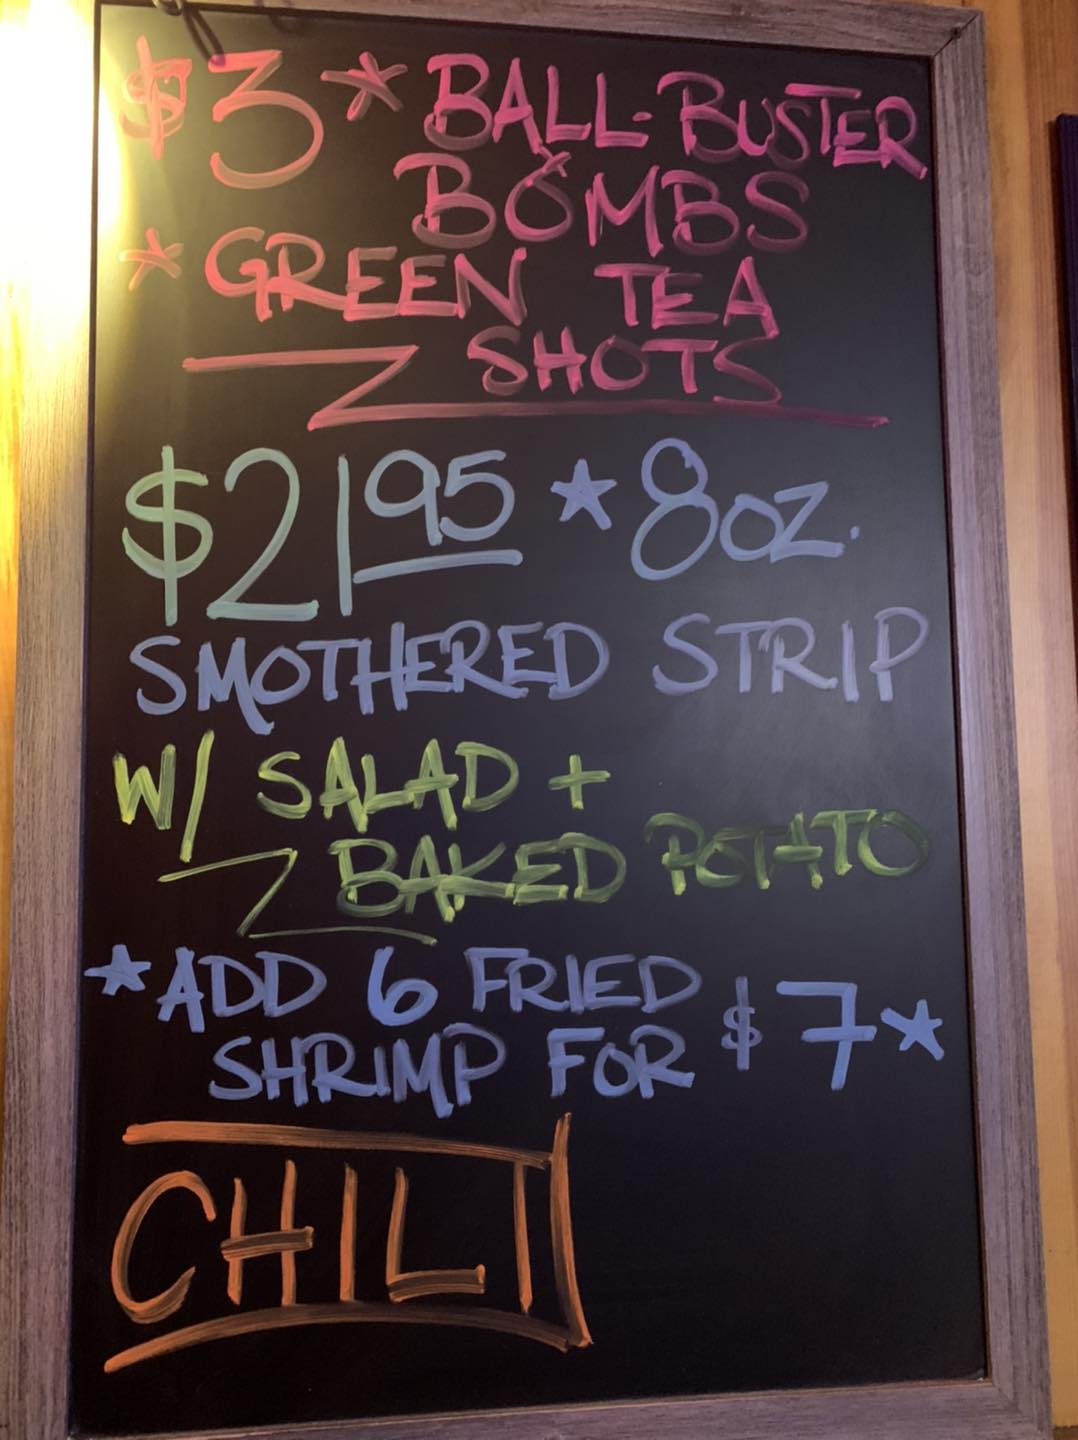 $3 * BALL-BUSTER
BOMBS
* GREEN TEA
SHOTS
$21.95 * 8oz.
SMOTHERED STRIP
W/ SALAD +
BAKED POTATO
*ADD 6 FRIED
SHRIMP FOR $7*
CHILI